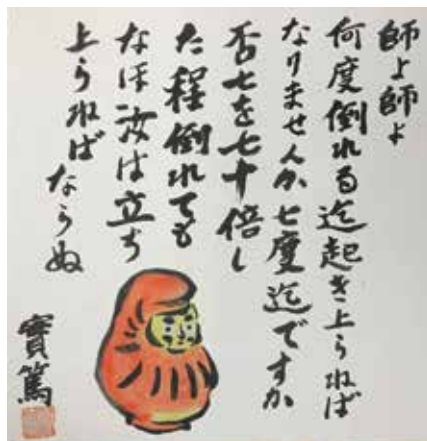 師よ師よ
何度倒れる迄起き上らねば
なりませんか七度迄ですか
否七を七十倍し
た程倒れても
なほ汝は立ち
上らねば
ならぬ
實篤